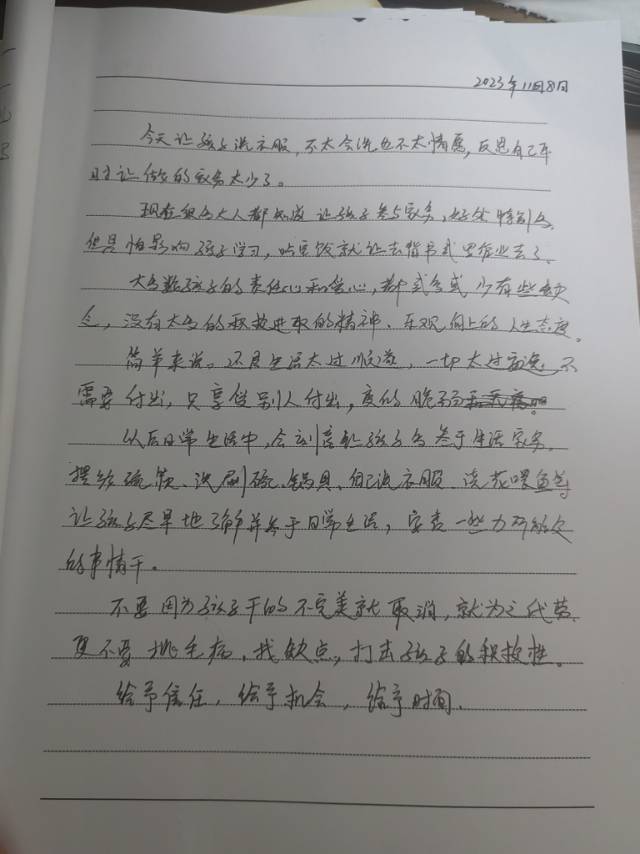 2023年11月8日
今天让孩子洗衣服，不太会洗也不太情愿，反思自己平
时让做的家务太少了。
现在很多大人都知道让孩子参与家务，好处特别多
但是怕影响孩子学习，吃完饭就让去背书或写作业去了。
大多数孩子的责任心和爱心，都或多或少有些缺
乏，没有太多的积极进取的精神、乐观向上的人生态度。
简单来说。还是生活太过顺遂，一切太过，不
需要付出，只享受别人付出，变的脆弱
以后日常生活中，会刻意让孩子多参于生活家务，
摆放碗筷、洗刷碗、锅具、自己洗衣服、浇花喂鱼等
让孩子尽早地了解并参于日常生活，安责一些力所能及
的事情干。
不要因为孩子干的不完美就取消，就为之代劳，
更不要挑毛病，找缺点，打击孩子的积极性。
给予信任，给予机会，给予时间.